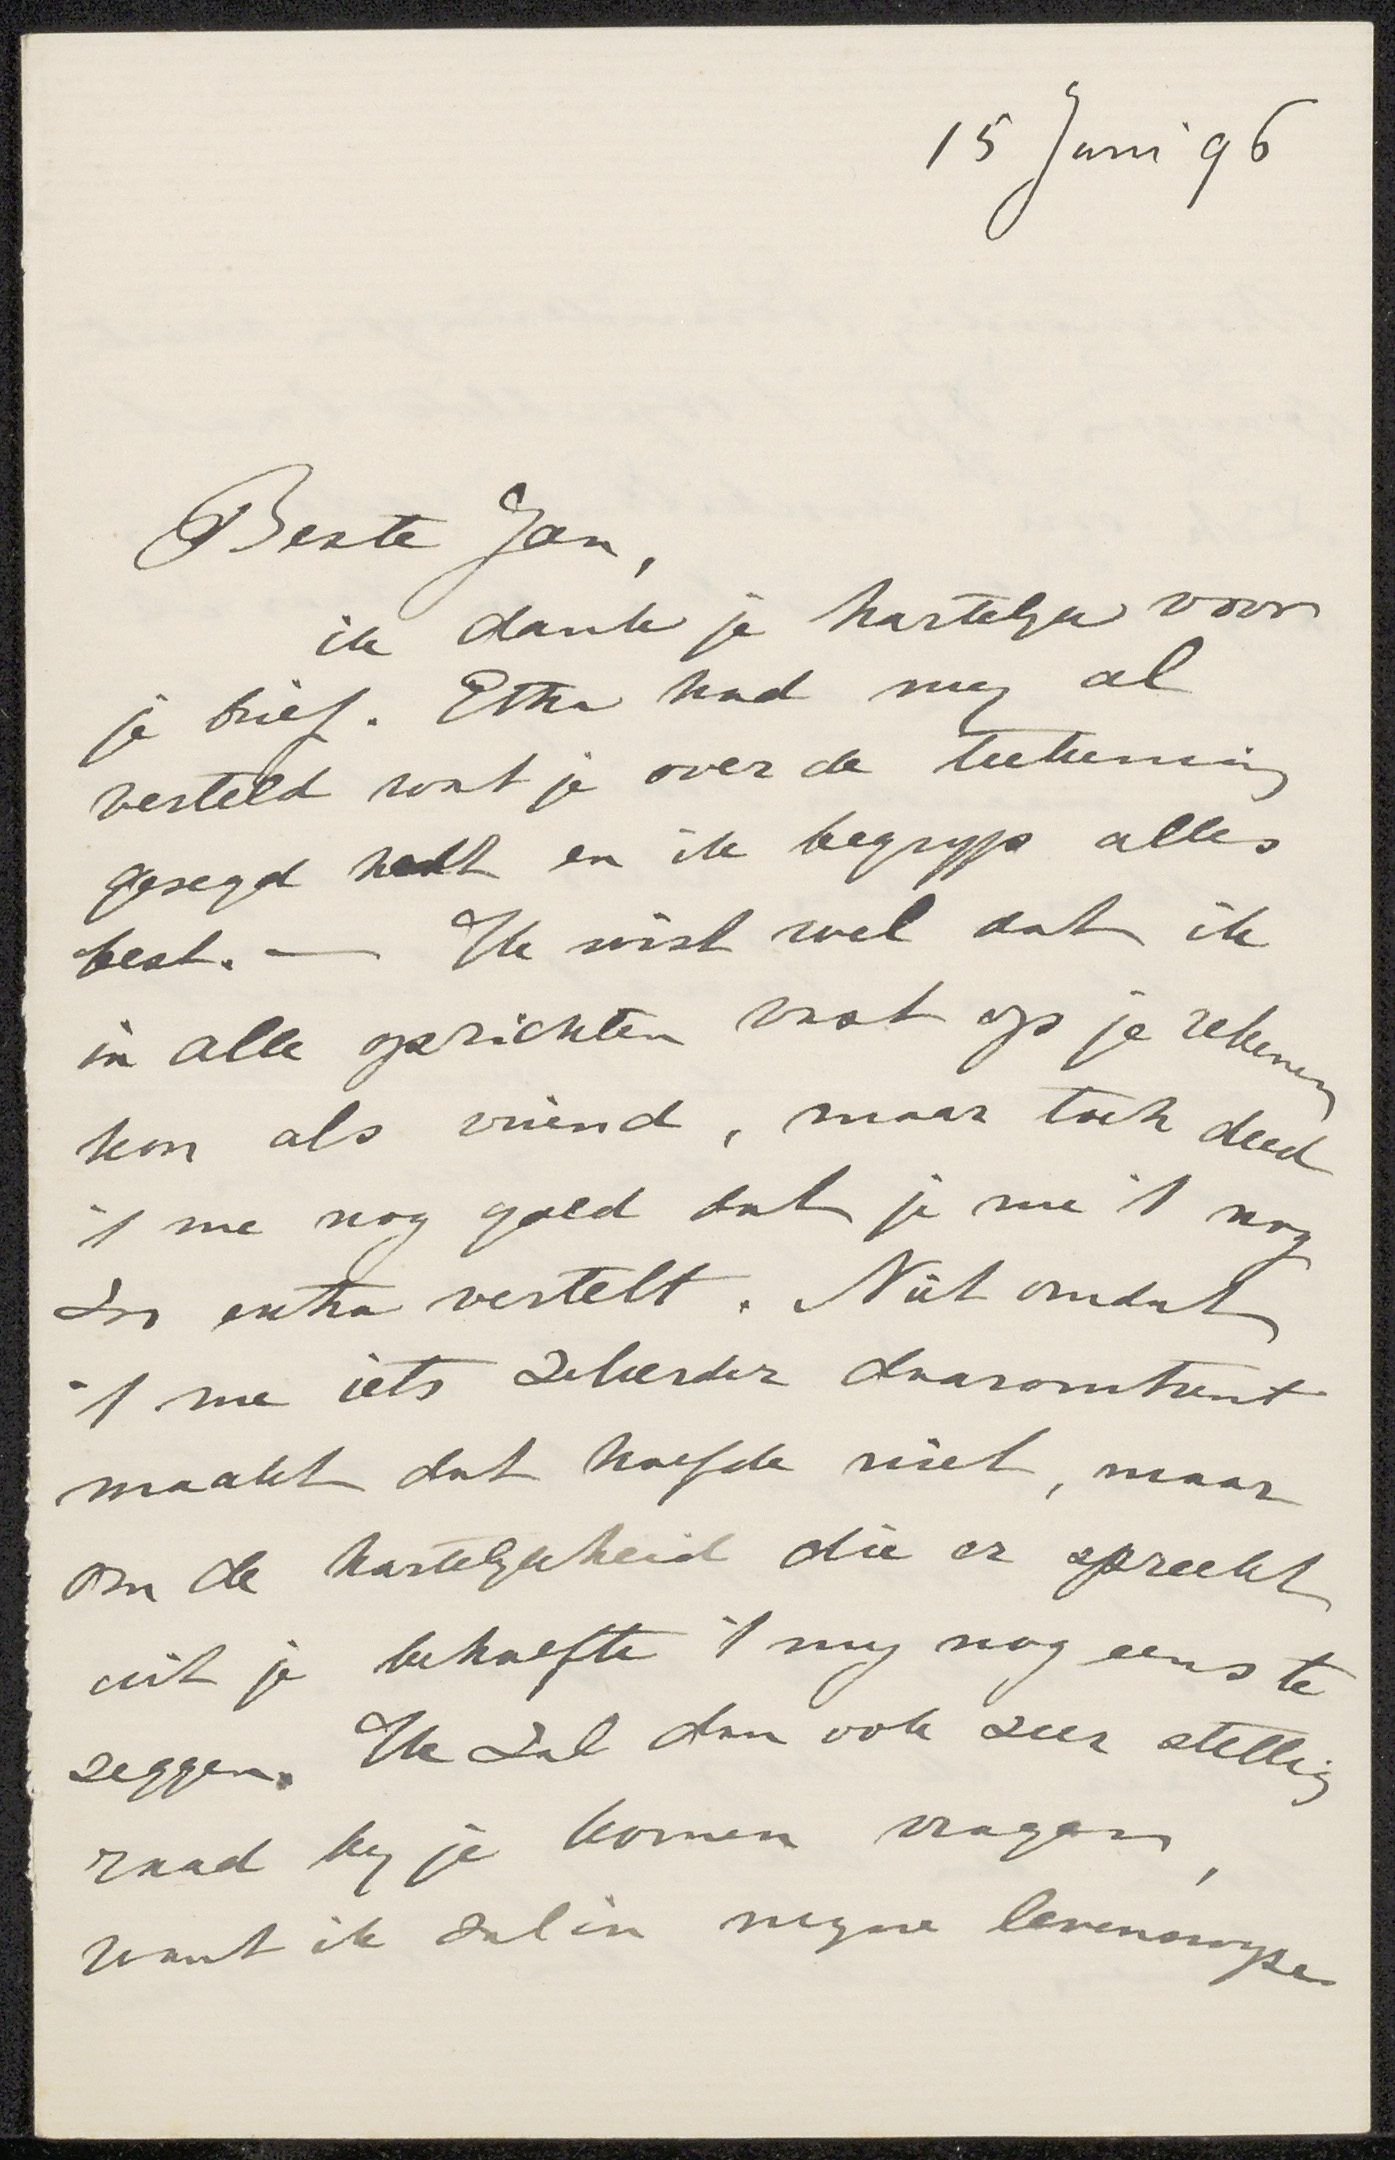 15 Juni 96
Beste Jan,
ik dank je hartelyk voor
je brief. Etha had my al
verteld wat je over de teekening
gezegd hadt en ik begryp alles
best. — Ik wist wel dat ik
in alle opzichten vast op je rekenen
kon als vriend, maar toch deed
't me nog goed dat je me 't nog
zoo extra vertelt. Niet omdat
't me iets zekerder daaromtrent
maakt dat hoefde niet, maar
om de hartelykheid die er spreekt
uit je behoefte 't my nog eens te
zeggen. Ik zal dan ook zeer stellig
raad by je komen vragen,
want ik zal in myne levenswyze